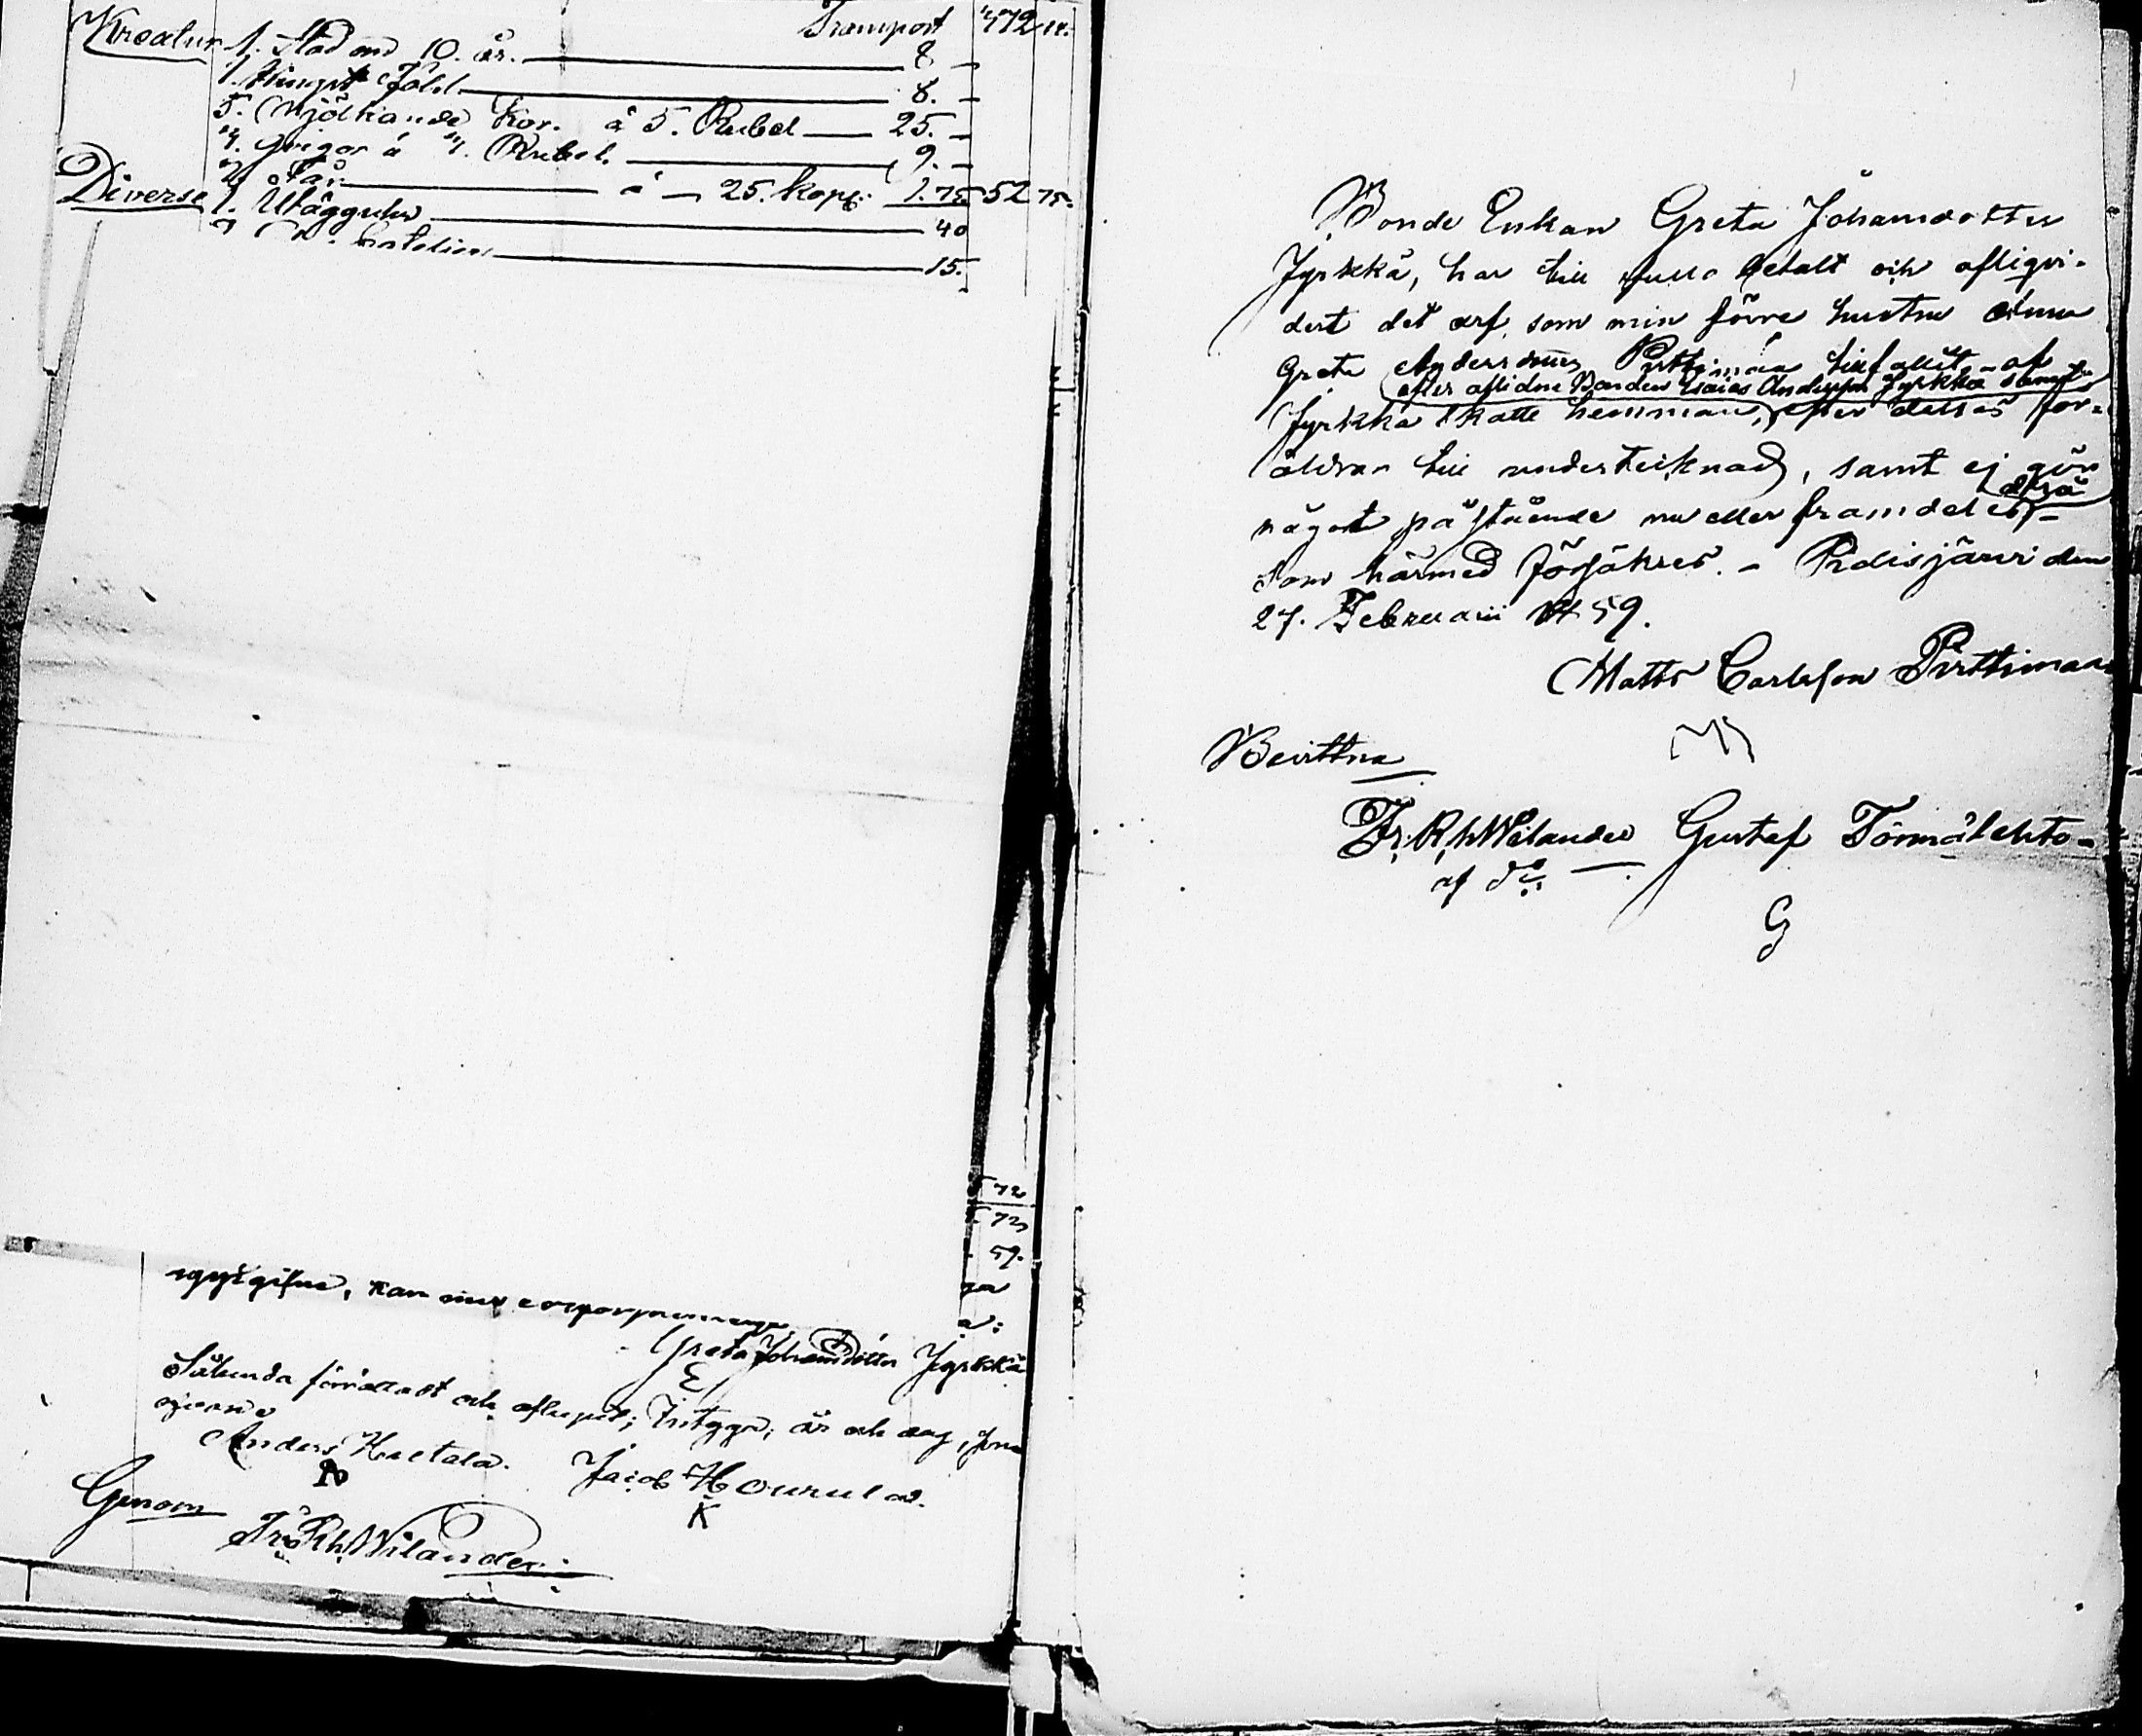 Transport 472
Kreatur 1. Stod om 10. år. 8 -
1. Hingst Föhl 8. -
5. Mjölkande Kor. á 5. Rubel 25. -
á Rubel. 9. -
7 Får á - 25. kopk: 1.75 52 75.
Diverse 1. Wägguhr 40
15.
572
572
59.
uppgifne, kan
Greta Johansdotter Jyrkkä
Sålunda förrättadt och aflupit; intyga, år och dag, som
Anders Huetala. Jacob Hourula.
N K
Genom
Fr: Rh: Wilander
Bonde Enkan Greta Johansdotter
Jyrkkä, har till fullo betalt och afliqvi-
dert det arf, som min förre hustru Anna
Greta Andersdotter Pirttimaa tillfallit, af
efter aflidne Bonden Esaias Andersson Jyrkkä samt
Jyrkkä Skatte hemman, efter dess för-
äldrar till undertecknad, samt ej gör
något påstående nu eller framdeles,-
som härmed försäkres. - Pidisjärvi den
27. Februarii 1859.
Matts Carlsson Pirttimaa
Bevittna
Fr. Rh Wilander Gustaf Törmälehto -
G